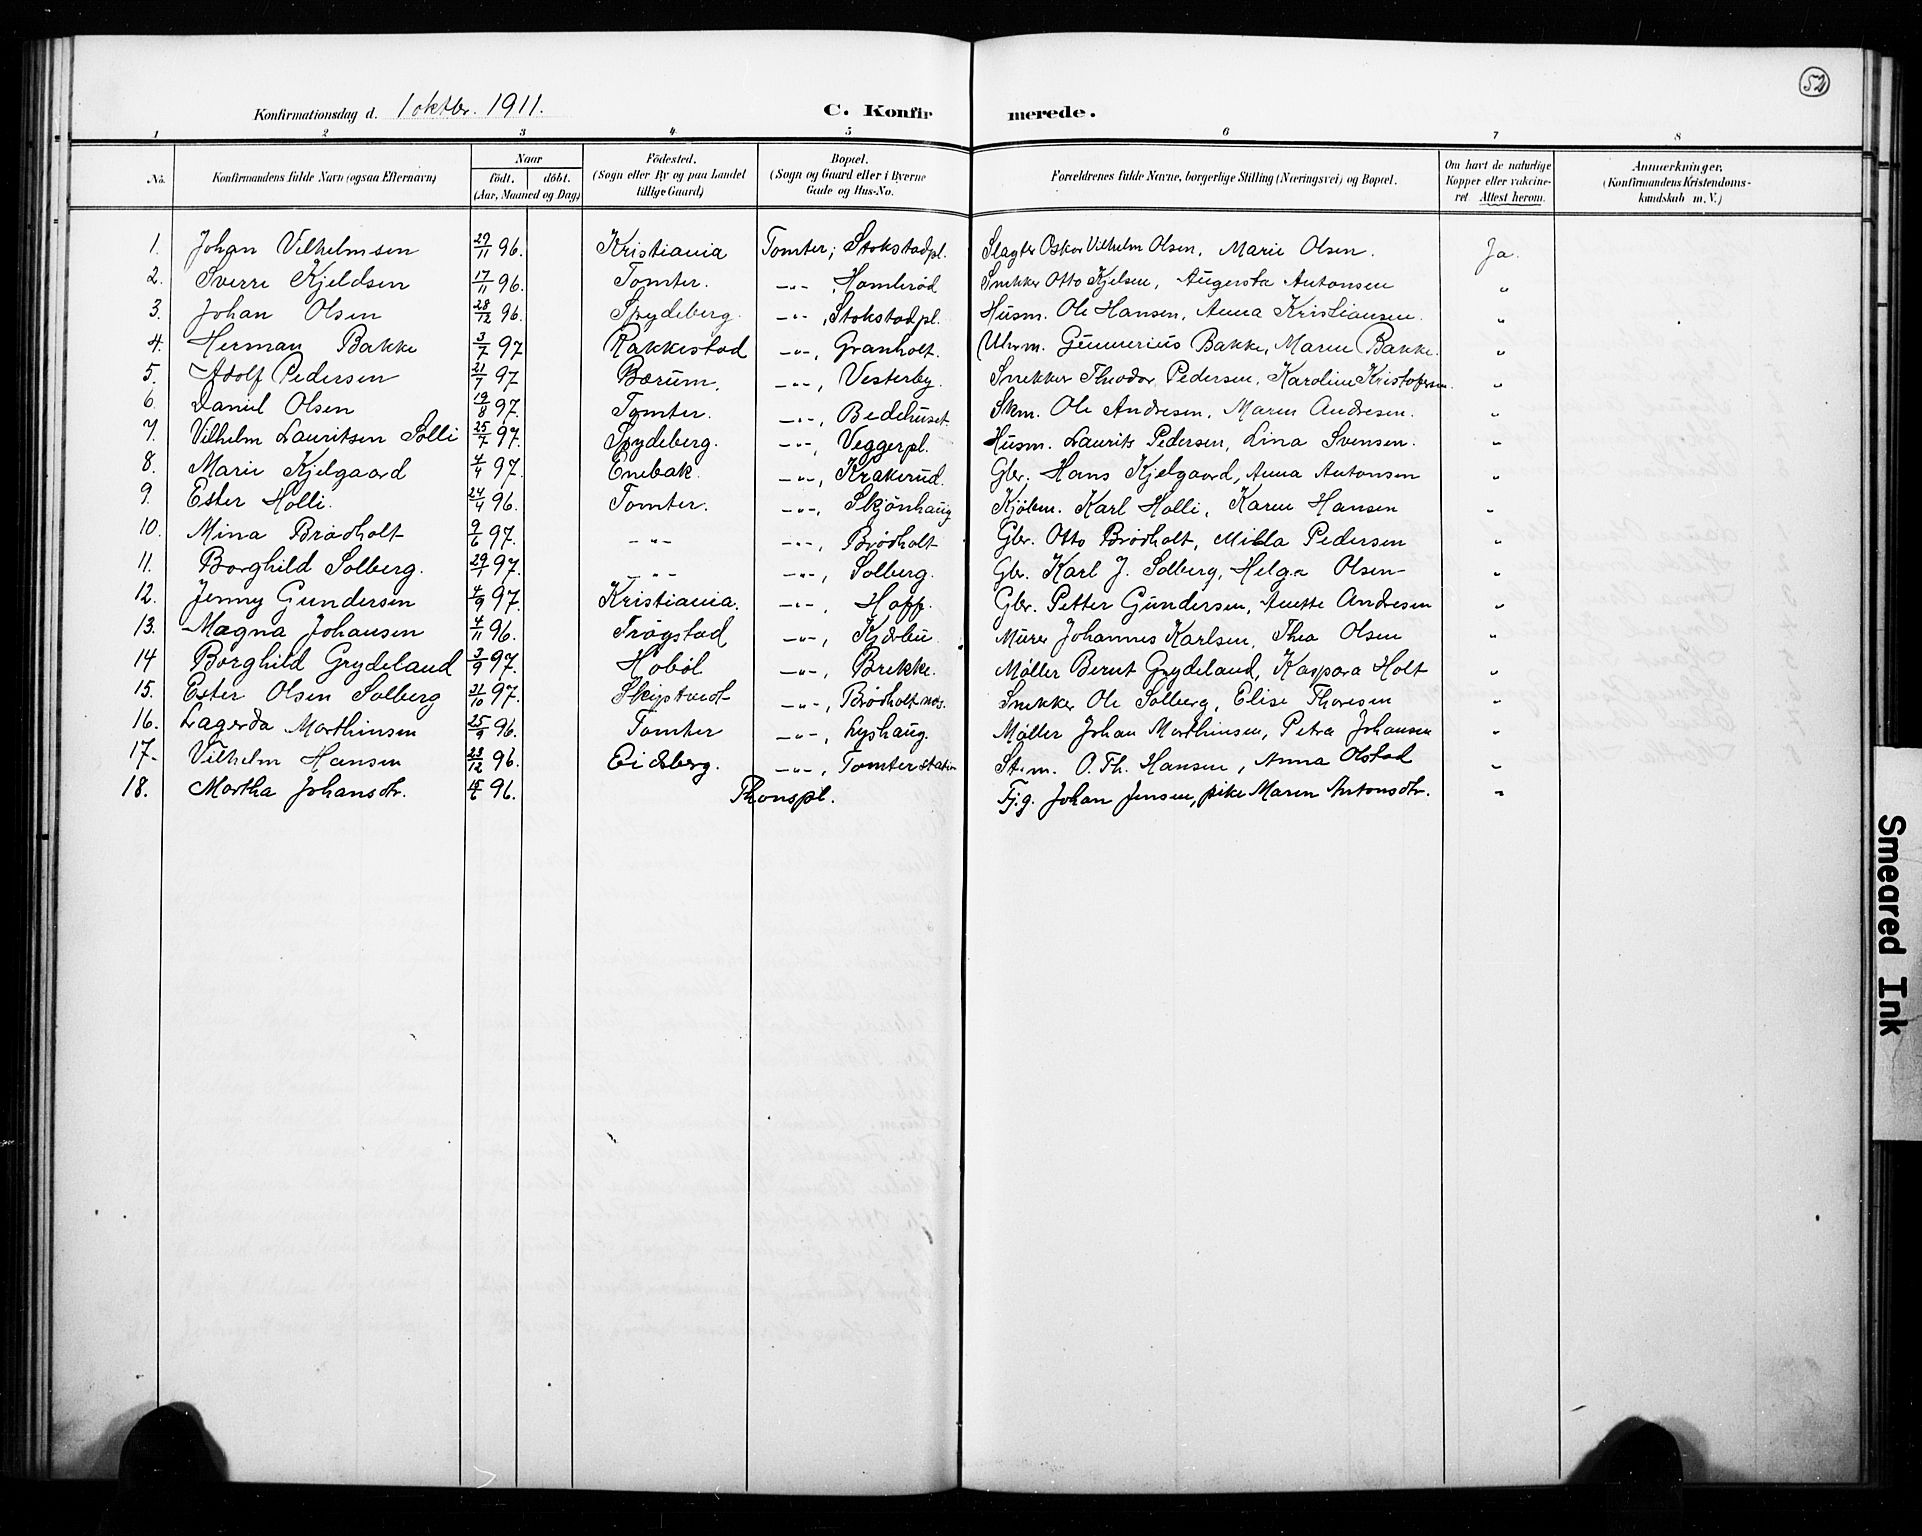 52
Konfirmationsdag d. 1 oktbr. 1911. C. Konfirmerede.
1 2 3 4 5 6 7 8
No. Konfirmandens fulde Navn (ogsaa Efternavn) Naar födt. döbt. (Aar, Maaned og Dag) Födested. (Sogn eller By og paa Landet tillige Gaard) Bopæl. (Sogn og Gaard eller i Byerne Gade og Hus-No. Forældrenes fulde Navne, borgerlige Stilling (Næringsvei) og Bopæl. Om havt de naturlige Kopper eller vakcineret Attest herom. Anmærkninger, (Konfirmandens Kristendomskundskab m. V.)
1. Johan Vilhelmsen 29/11 96. Kristiania Tomter; Stokstadpl. Slagter Oskar Vilhelm Olsen, Marie Olsen. Ja.
2. Sverre Kjeldsen 17/11 96. Tomter. -"-, Hambrød Snekker Otto Kjelsen, Augusta Antonsen "
3. Johan Olsen 28/12 96. Spydeberg. -"-, Stokstadpl. Husm. Ole Hansen, Anna Kristiansen. "
4. Herman Bakke 3/7 97 Rakkestad -"-, Granholt. Uhrm. Gunnerius Bakke, Maren Bakke. "
5. Adolf Pedersen 21/7 97 Bærum. -"-, Vesterby. Snekker Theodor Pedersen, Karoline Kristofersen "
6. Daniel Olsen 19/8 97. Tomter. -"-, Bedehuset. Skm. Ole Andresen, Maren Andresen. "
7. Vilhelm Lauritsen Solli 25/7 97. Spydeberg. -"-, Veggerpl. Husm. Laurits Pedersen, Lina Svensen. "
8. Marie Kjelgaard 4/4 97. Enebak. -"-, Krakerud. Gbr. Hans Kjelgaard, Anna Antonsen "
9. Ester Holli. 24/4 96. Tomter. -"-, Skjønhaug Kjøbm. Karl Holli, Karen Hansen "
10. Mina Brødholt 9/6 97. -"- -"-, Brødholt Gbr. Otto Brødholt, Milla Pedersen "
11. Borghild Solberg. 29/1 97. -"- -"-, Solberg. Gbr. Karl J. Solberg, Helga Olsen "
12. Jenny Gundersen 4/9 97. Kristiania. -"-, Hoff. Gbr. Petter Gundersen, Anette Andresen "
13. Magna Johansen 4/11 96. Trøgstad -"-, Kjærbu Murer Johannes Karlsen, Thea Olsen "
14 Borghild Grydeland 3/9 97. Hobøl -"-, Brekke. Møller Bernt Grydeland, Kaspara Holt "
15. Ester Olsen Solberg 31/10 97. Skiptvedt -"-, Brødholt mos. Snekker Ole Solberg, Elise Thoresen "
16. Lagerda Marthinsen 25/9 96. Tomter -"-, Lyshaug. Møller Johan Marthinsen, Petra Johansen "
17. Vilhelm Hansen 23/12 96. Eidsberg. -"-, Tomter station St.m. O. Th. Hansen, Anna Olstad "
18. Martha Johansdtr. 96. Thonspl. Fj.g. Johan Jensen, pike Maren Antonsdtr. "
Smeared Ink